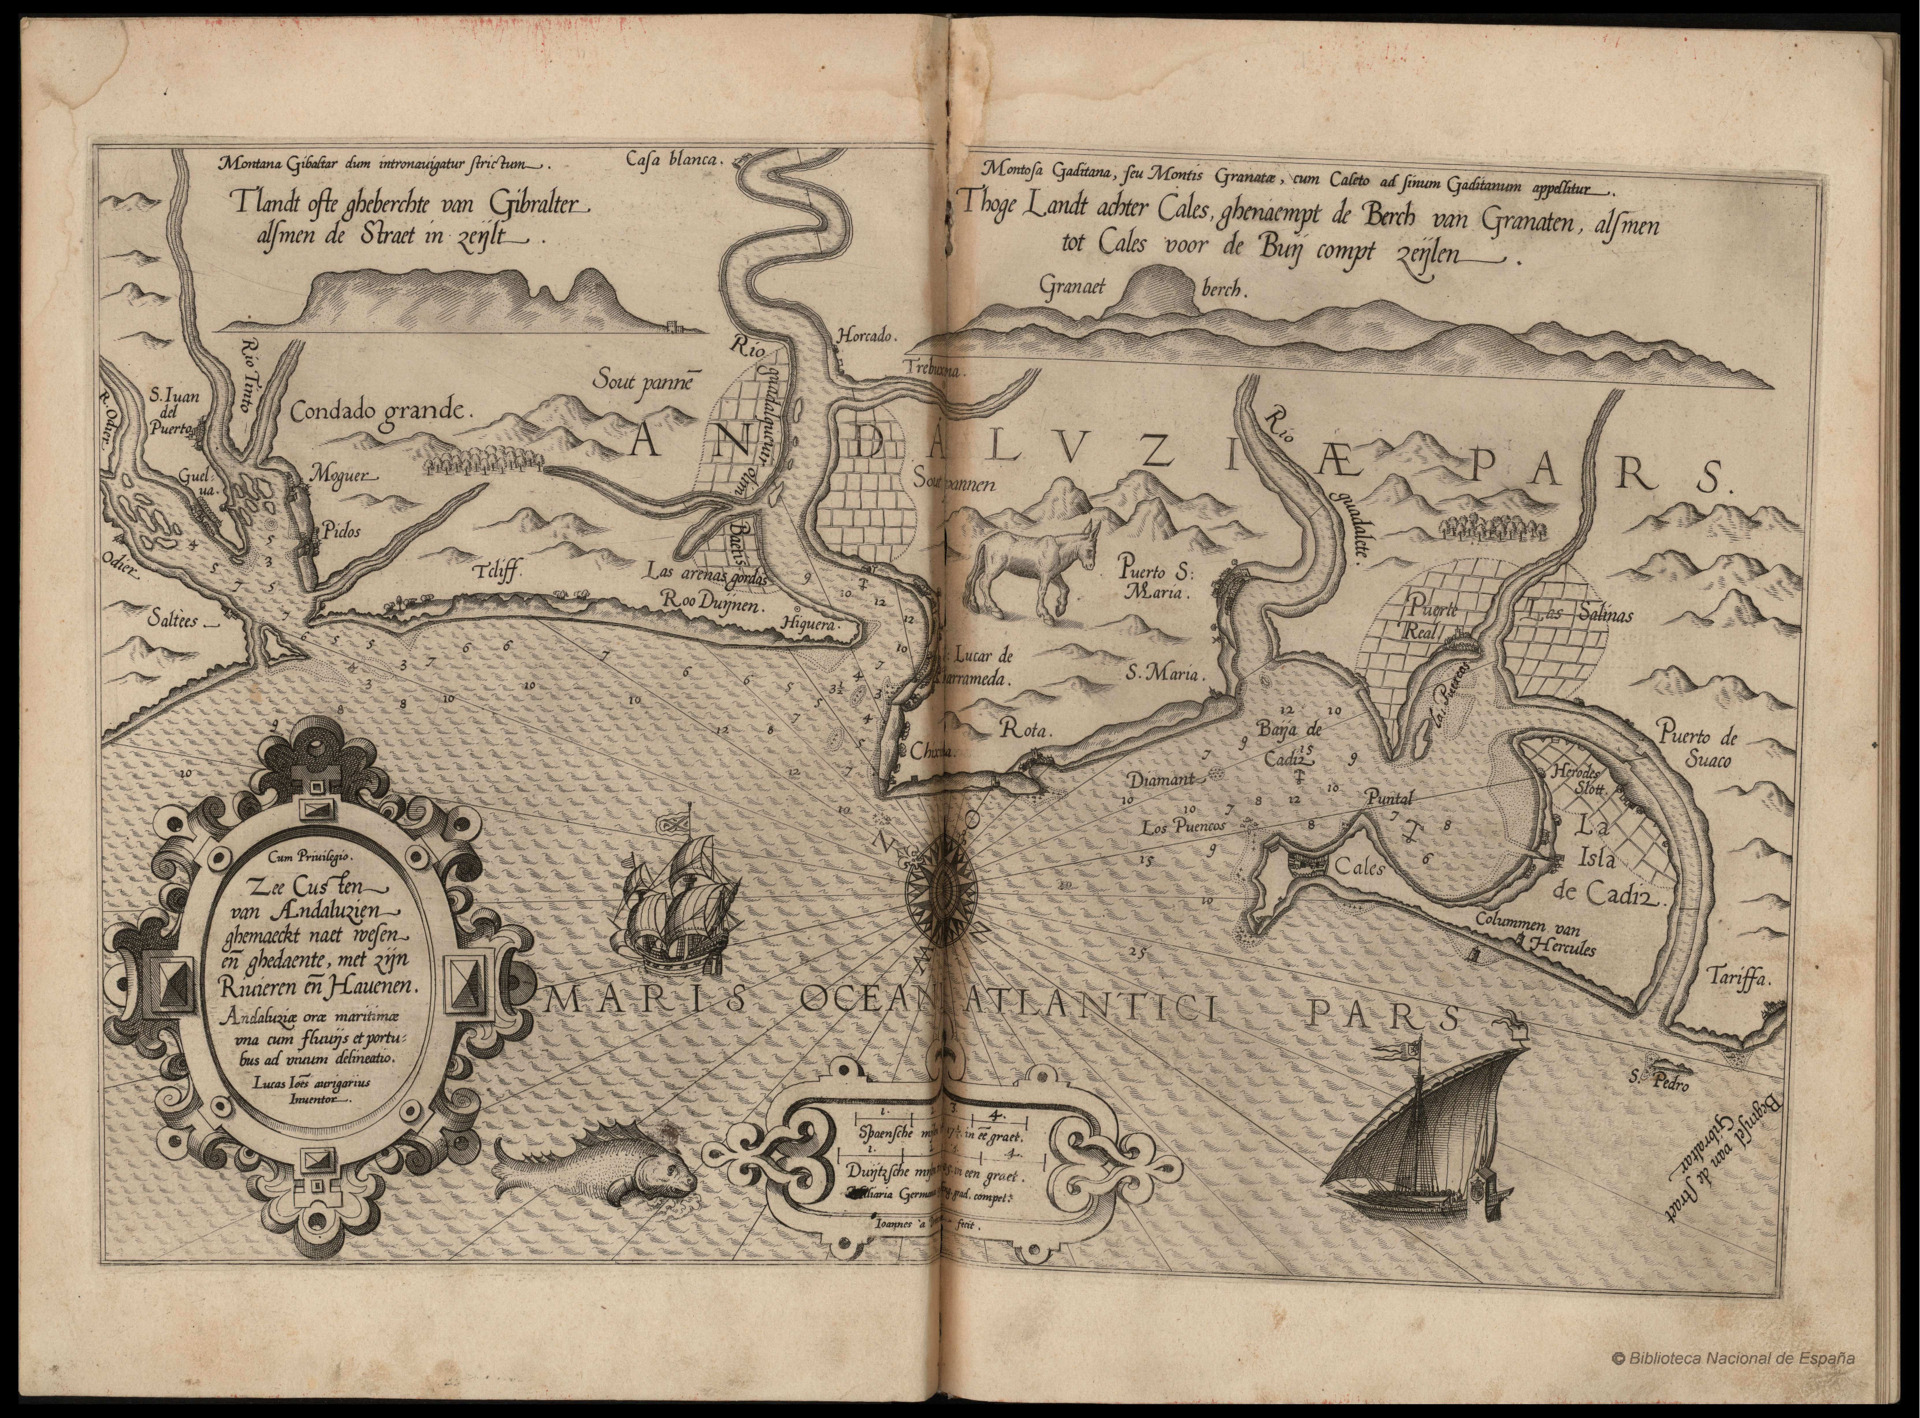 Montana Gibaltar dum intronauigatur strictum.
Tlandt ofte gheberchte van Gibralter
alsmen de Straet in zeijlt.
Casa blanca.
Montosa Gaditana, seu Montis Granatæ, cum Caleto ad sinum Gaditanum appellitur.
Thoge Landt achter Cales, ghenaempt de Berch van Granaten, alsmen
tot Cales voor de Buij compt zeijlen.
Granaet berch.
Horcado.
Trebuxena.
Rio
guadalquiuir olim
Baetis
Sout pannē
Rio Tinto
S. Iuan
del
Puerto
R. Odier
Condado grande.
ANDALVZIÆ PARS.
Rio
guadalete.
Guel
ua.
Moguer
Sout pannen
Pidos
Odier.
Tcliff.
Las arenas gordas
Roo Duijnen.
Higuera.
Puerto S:
Maria.
Puerte
Real
Las Salinas
Saltees
Lucar de
Barrameda.
S. Maria.
Rota.
Baija de
Cadiz
Puerto de
Suaco
Diamant
Herodes
Slott.
Puntal
Los Puercos
La
Isla
de Cadiz.
Cales
Columnen van
Hercules
Tariffa.
S. Pedro
Beginsel van de straet
Gibraltar
MARIS OCEANI ATLANTICI PARS
Cum Priuilegio.
Zee Custen
van Andaluzien
ghemaeckt naet wesen
eñ ghedaente, met zijn
Riuieren eñ Hauenen.
Andaluziæ oræ maritimæ
vna cum fluuijs et portu:
bus ad viuum delineatio.
Lucas Ioēs aurigarius
Inventor.
1. 3. 4.
Spaensche in eē graet.
1. 4.
Duijtzsche in een graet.
grad. compet:
Ioannes a fecit.
© Biblioteca Nacional de España